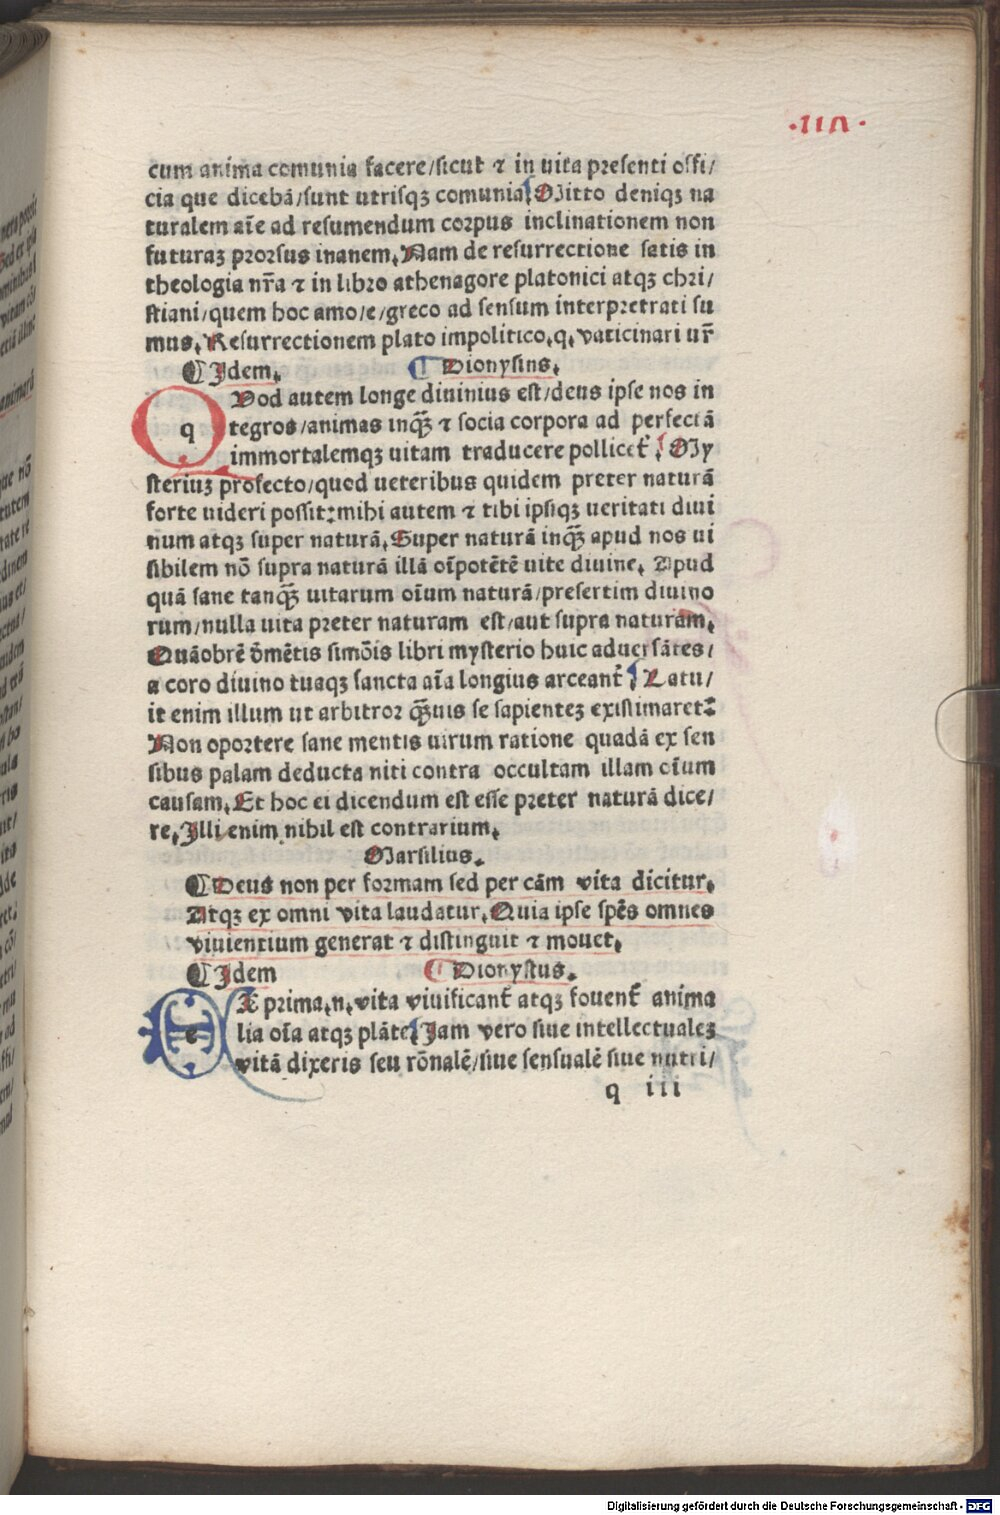 ·117·
cum anima comunia facere/sicut ⁊ in uita presenti offi/
cia que dicebā/sunt utrisqꝫ comunia. Mitto deniqꝫ na
turalem aīe ad resumendum corpus inclinationem non
futuraꝫ prorsus inanem. Nam de resurrectione satis in
theologia nr̄a ⁊ in libro athenagore platonici atqꝫ chri/
stiani/quem hoc amo/e/greco ad sensum interpretrati su
mus. Resurrectionem plato impolitico.q. vaticinari ur̄
¶ Idem. ¶ Dionysins.
QVod autem longe diuinius est/deus ipse nos in
tegros/animas inqꝫ̄ ⁊ socia corpora ad perfectā
immortalemqꝫ uitam traducere pollicet̄. My
steriuꝫ profecto/quod ueteribus quidem preter naturā
forte uideri possit:mihi autem ⁊ tibi ipsiqꝫ ueritati diui
num atqꝫ super naturā. Super naturā inqꝫ̄ apud nos ui
sibilem nō supra naturā illā oīpotētē uite diuine. Apud
quā sane tanqꝫ̄ uitarum oīum naturā/presertim diuino
rum/nulla uita preter naturam est/aut supra naturam.
Quāobrē d̄mētis simōis libri mysterio huic aduersātes/
a coro diuino tuaqꝫ sancta aīa longius arceant̄. Latu/
it enim illum ut arbitror qꝫ̄uis se sapienteꝫ existimaret:
Non oportere sane mentis uirum ratione quadā ex sen
sibus palam deducta niti contra occultam illam oīum
causam. Et hoc ei dicendum est esse preter naturā dice/
re. Illi enim nihil est contrarium.
Marsilius.
¶ Deus non per formam sed per cām vita dicitur.
Atqꝫ ex omni vita laudatur. Quia ipse spēs omnes
viuientium generat ⁊ distinguit ⁊ mouet.
¶ Idem ¶ Dionystus.
eX prima.n.vita viuificant̄ atqꝫ fouent̄ anima
lia oīa atqꝫ plāte. Jam vero siue intellectualeꝫ
vitā dixeris seu rōnalē/siue sensualē siue nutri/
q iii
Digitalisierung gefördert durch die Deutsche Forschungsgemeinschaft - DFG